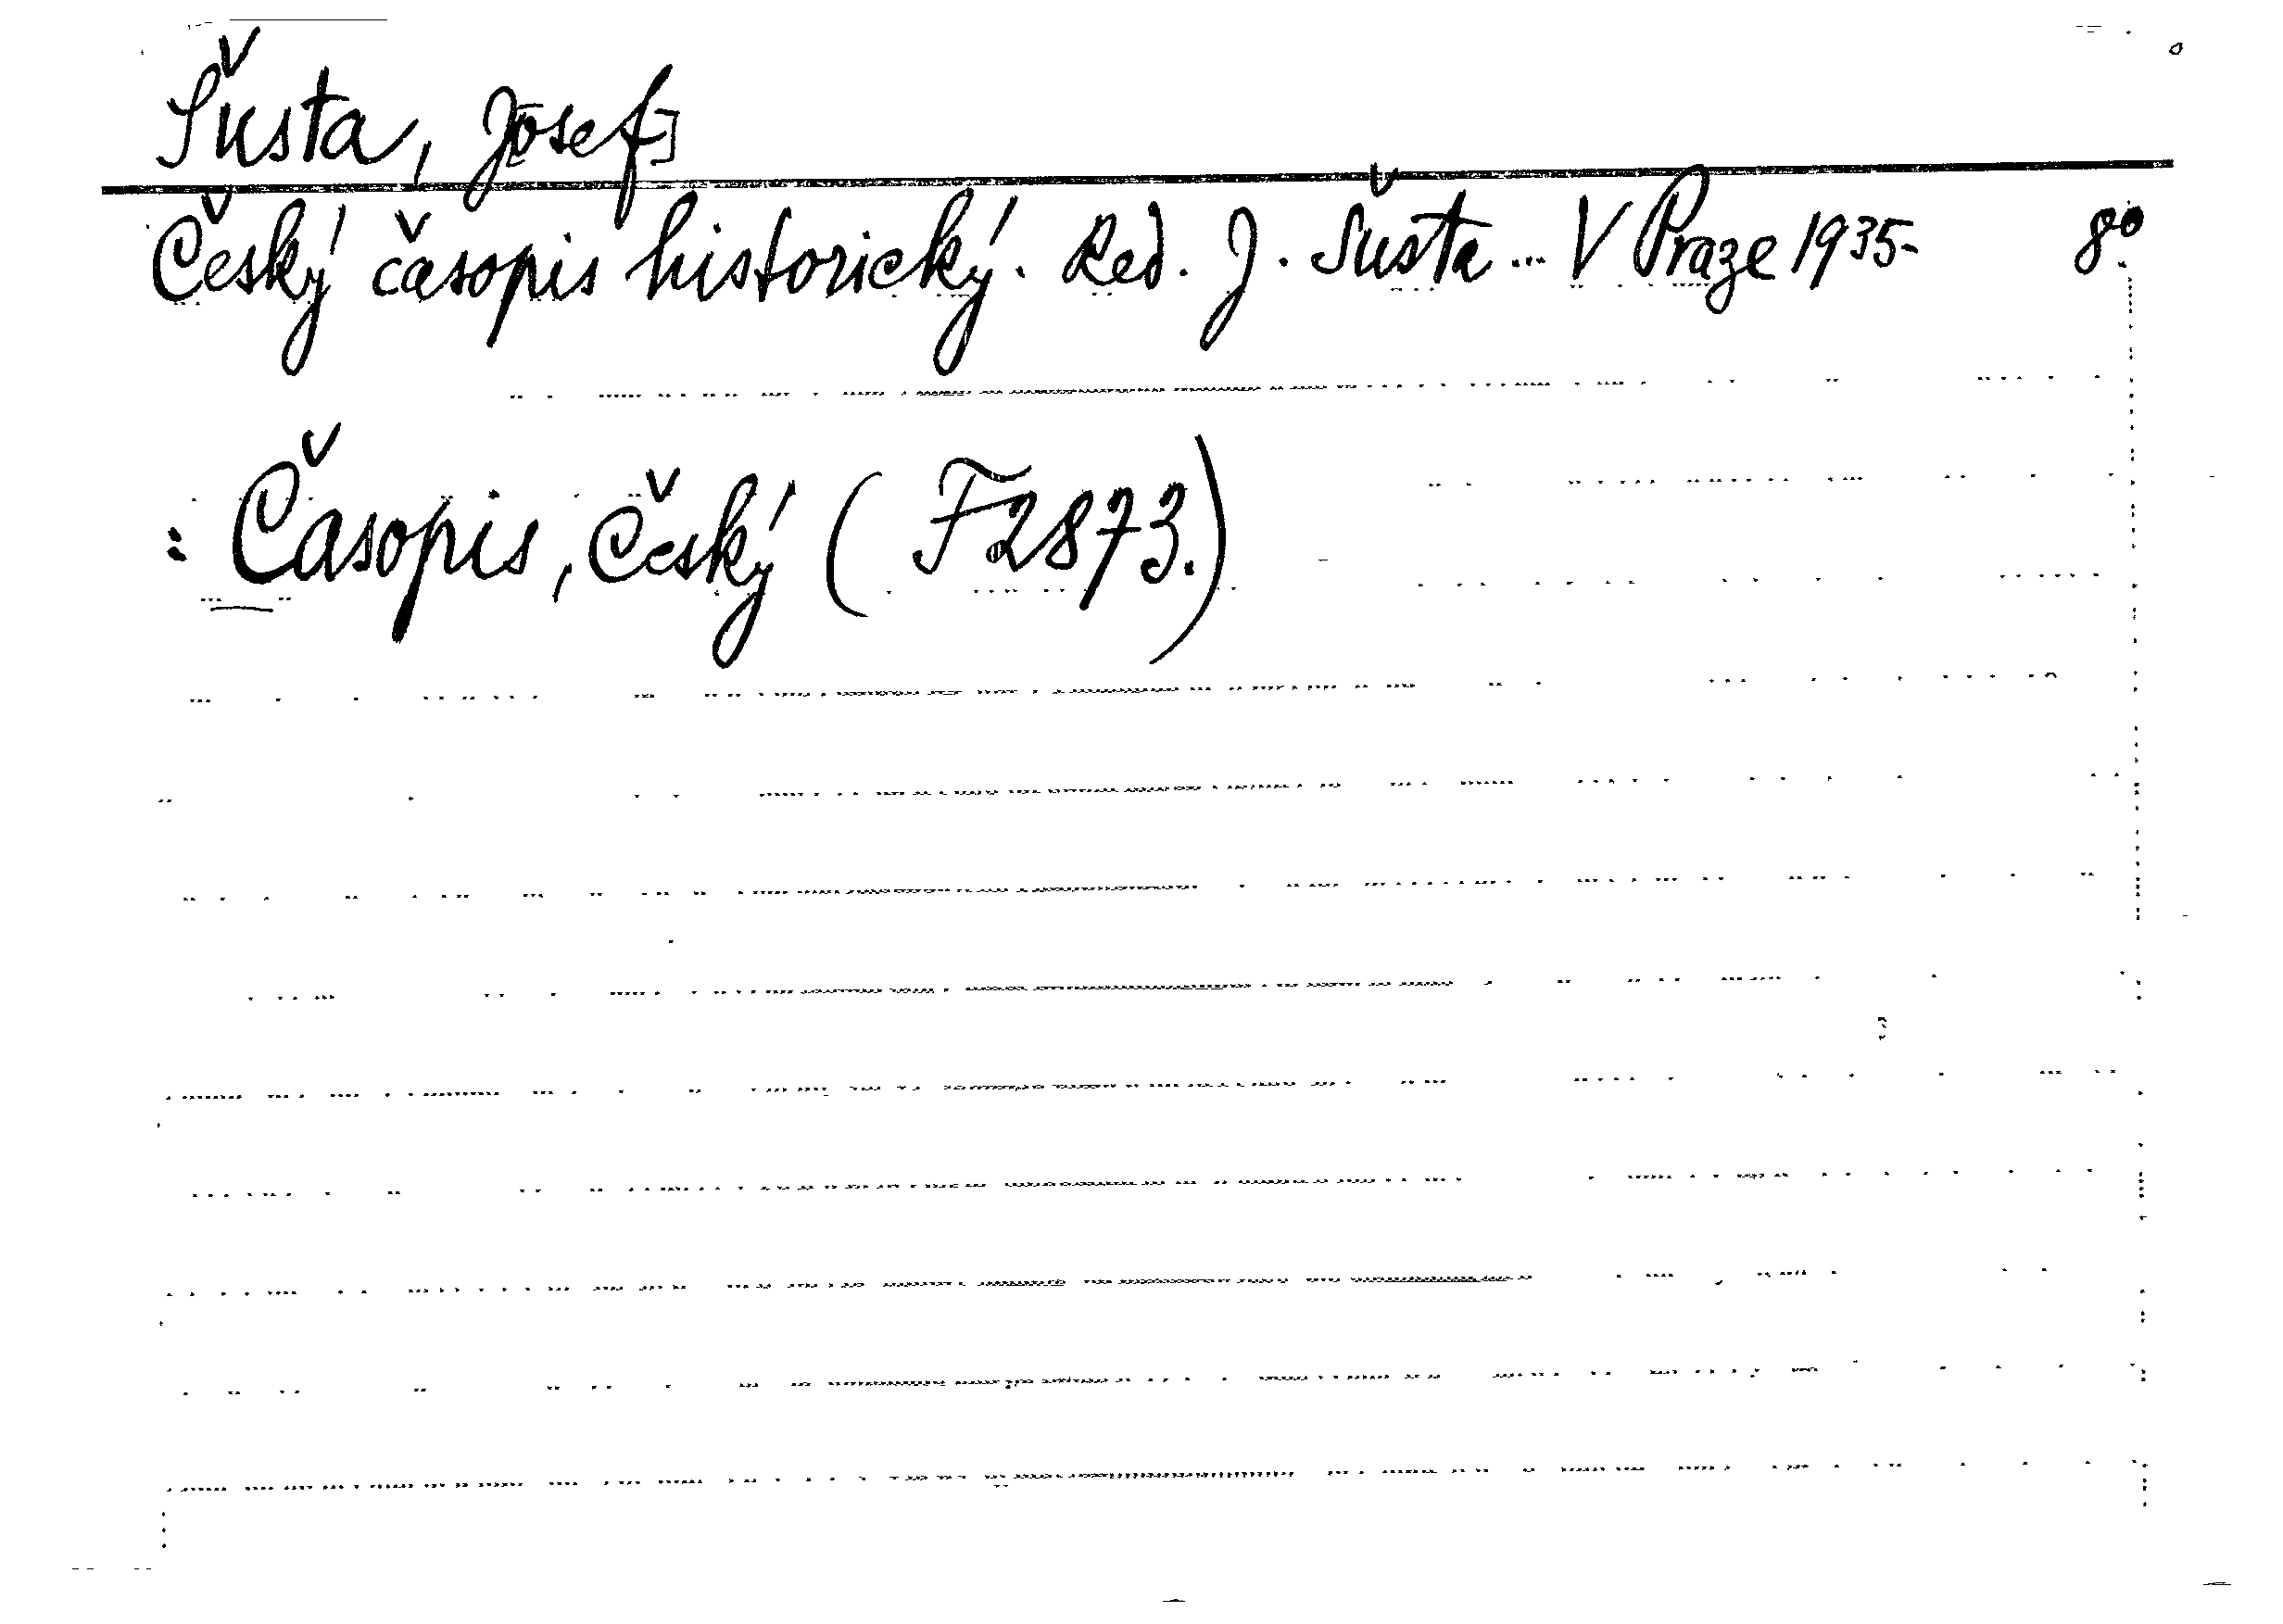 Šusta, J[osef]
Český časopis historický. Red. J. Šusta ... V Praze 1935- 8º.
: Časopis, Český (F2873.)